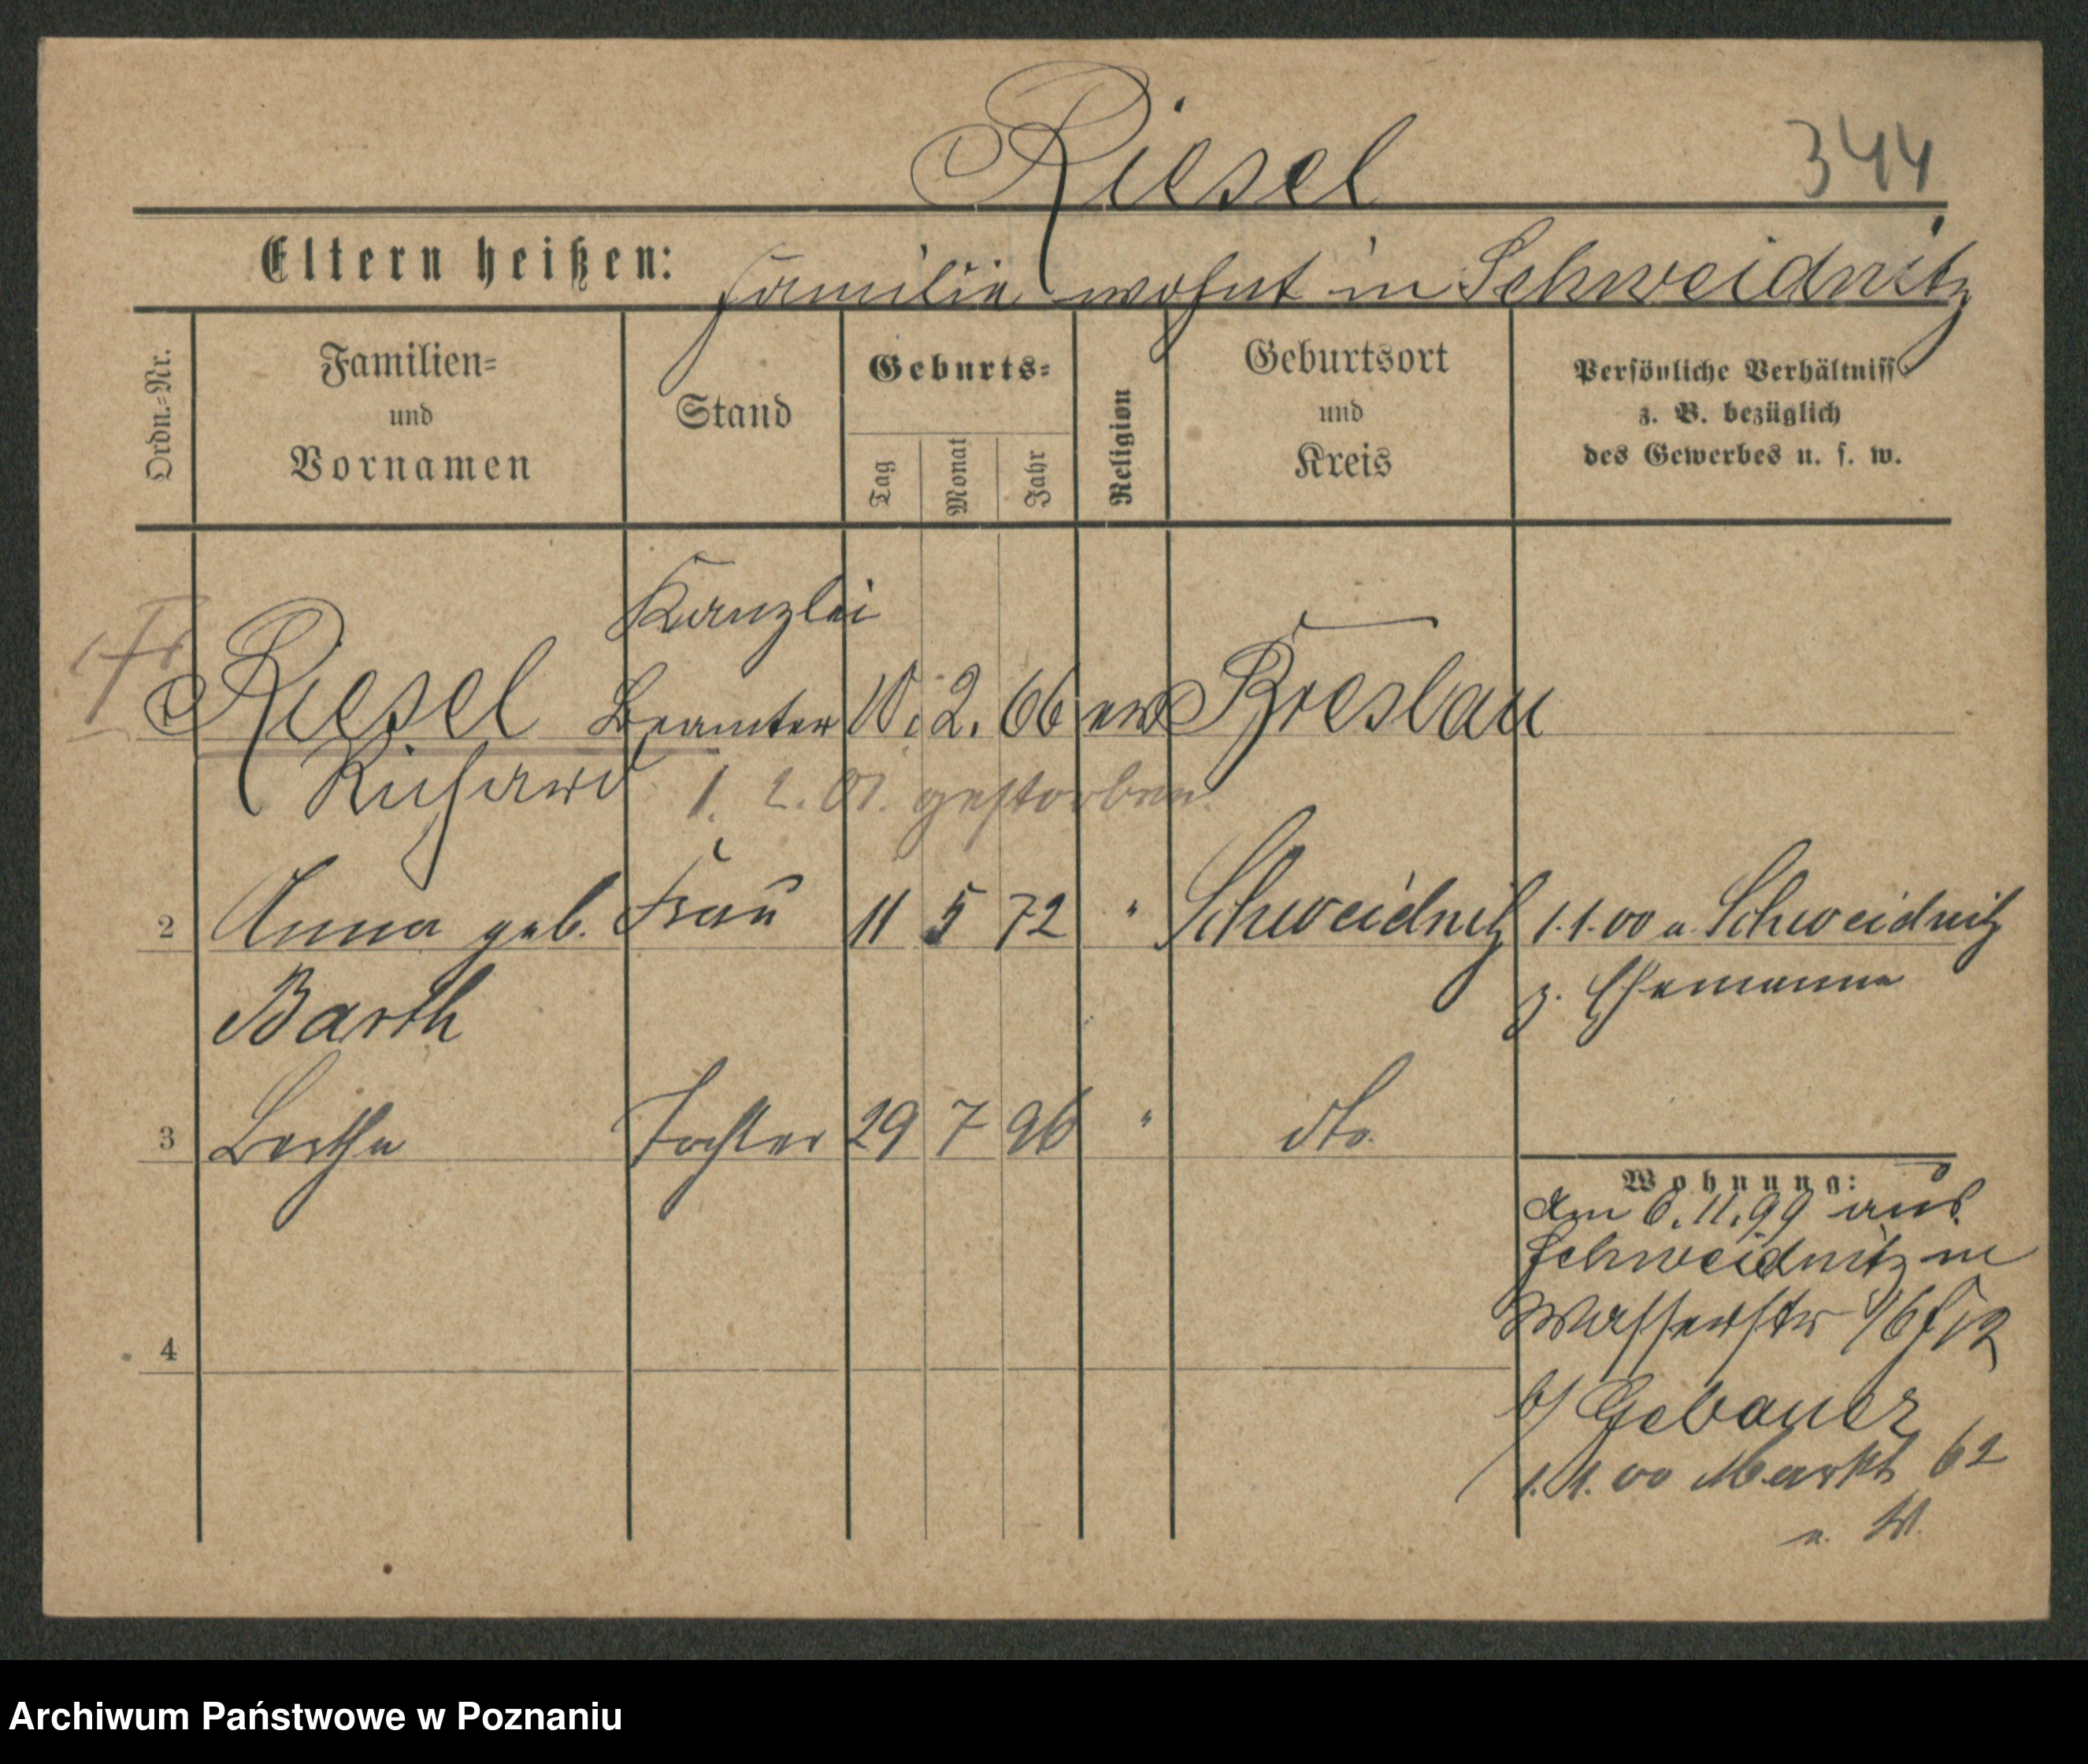 Riesel 344
Eltern heißen: Familie wohnt in Schweidnitz
Ordn.-Nr.
Familien=
und
Vornamen
Stand
Geburts=
Tag
Monat
Jahr
Religion
Geburtsort
und
Kreis
Persönliche Verhältniss
z. B. bezüglich
des Gewerbes u. s. w.
Kanzlei
Riesel Beamter 10. 2. 66 ev Breslau
Richard 1. 2. 01. gestorben.
2 Anna geb. Frau 11 5 72 " Schweidnitz 1.1.00 a. Schweidnitz
Barth z. Ehemanne
3 Bertha Tochter 29 7 96 " dto.
Wohnung:
Am 6.11.99 aus
Schweidnitz in
Wasserstr
b/ Gebauer
1.1.00 Markt 62
4
Archiwum Państwowe w Poznaniu